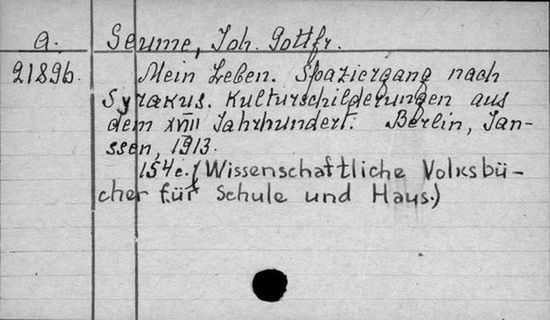 a. Seume, Joh. Gottfr.
21896. Mein Leben. Spaziergang nach
Syrakus. Kulturschilderungen aus
dem XVIII Jahrhundert. Berlin, Jan-
ssen, 1913.
154c. (Wissenschaftliche Volksbü-
cher für Schule und Haus.)